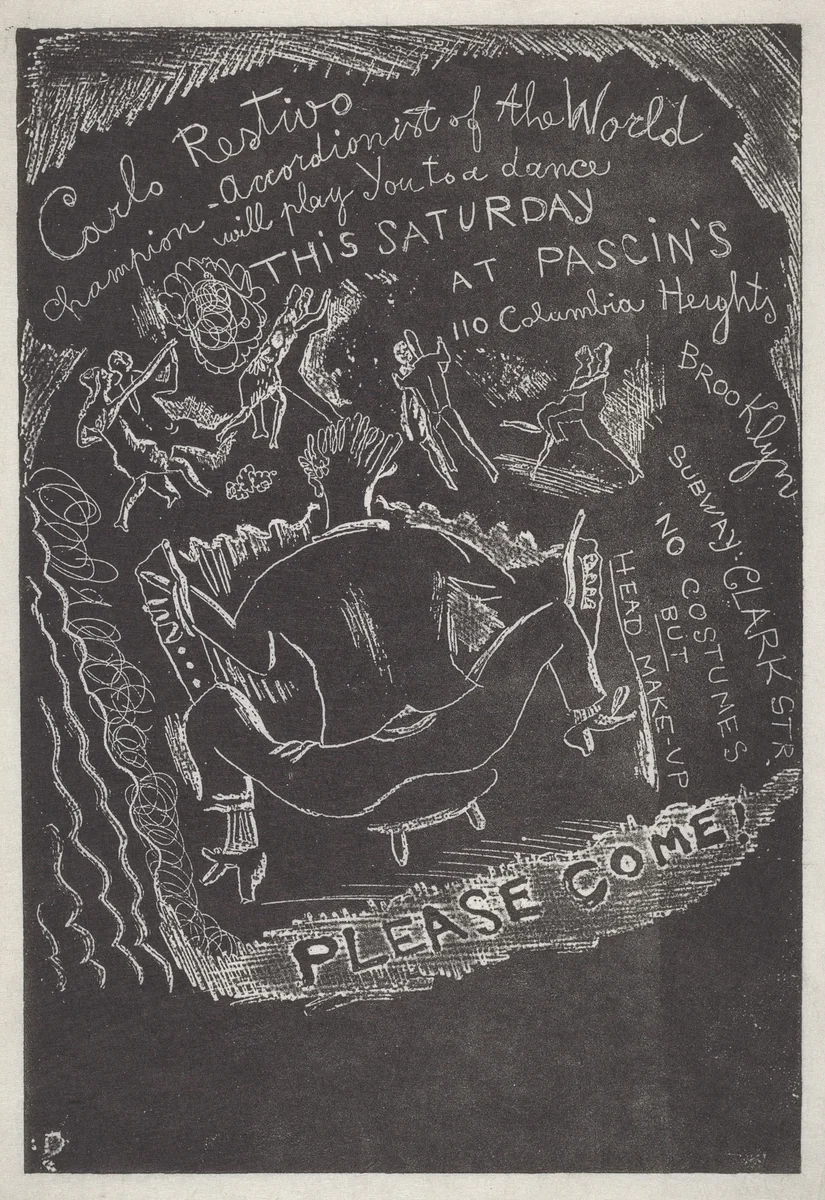 Carlo Restivo
champion-accordionist of the World
will play You to a dance
THIS SATURDAY
AT PASCIN'S
110 Columbia Heights
BROOKlyn
SUBWAY: CLARK STR.
NO COSTUMES
BUT
HEAD MAKE-UP
PLEASE COME!